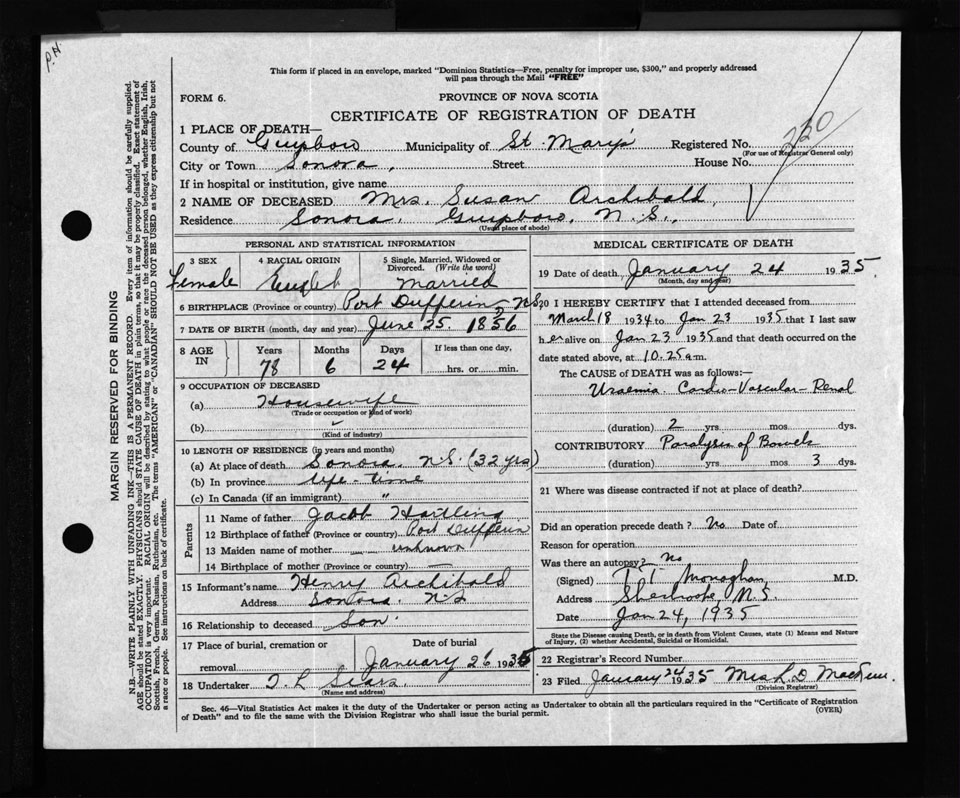 P.H
This form if placed in an envelope, marked "Dominion Statistics—Free, penalty for improper use, $300," and properly addressed
will pass through the Mail "FREE"
FORM 6.
PROVINCE OF NOVA SCOTIA
CERTIFICATE OF REGISTRATION OF DEATH
1 PLACE OF DEATH—
County of Guysboro Municipality of St. Mary's Registered No. 220
(For use of Registrar General only)
City or Town Sonora, Street House No.
If in hospital or institution, give name
2 NAME OF DECEASED Mrs. Susan Archibald,
Residence Sonora. Guysboro, N.S.,
(Usual place of abode)
PERSONAL AND STATISTICAL INFORMATION
3 SEX 4 RACIAL ORIGIN 5 Single, Married, Widowed or
Divorced. (Write the word)
Female English Married
6 BIRTHPLACE (Province or country) Port Dufferin N.S
7 DATE OF BIRTH (month, day and year) June 25. 1856
8 AGE IN Years Months Days If less than one day,
78 6 24 hrs. or min.
9 OCCUPATION OF DECEASED
(a) Housewife
(Trade or occupation or kind of work)
(b)
(Kind of industry)
10 LENGTH OF RESIDENCE (in years and months)
(a) At place of death Sonora. N.S. (32 yrs)
(b) In province life-time
(c) In Canada (if an immigrant) "
Parents
11 Name of father Jacob Hartling
12 Birthplace of father (Province or country) Port Dufferin
13 Maiden name of mother — unknown
14 Birthplace of mother (Province or country) —
15 Informant's name Henry Archibald
Address Sonora. N.S
16 Relationship to deceased Son.
17 Place of burial, cremation or Date of burial
removal January 26 1935
18 Undertaker T. L Sears
(Name and address)
MEDICAL CERTIFICATE OF DEATH
19 Date of death January 24 1935.
(Month, day and year)
20 I HEREBY CERTIFY that I attended deceased from
March 18 1934 to Jan 23 1935 that I last saw
her alive on Jan 23 1935 and that death occurred on the
date stated above, at 10.25 a m.
The CAUSE of DEATH was as follows:—
Uraemia. Cardio-Vascular-Renal
(duration) 2 yrs mos dys.
CONTRIBUTORY Paralysis of Bowels
(duration) yrs mos 3 dys.
21 Where was disease contracted if not at place of death?
Did an operation precede death? No Date of
Reason for operation
Was there an autopsy? No
(Signed) Monaghan, M.D.
Address Sherbrooke, N.S.
Date Jan 24, 1935
State the Disease causing Death, or in death from Violent Causes, state (1) Means and Nature
of Injury, (2) whether Accidental, Suicidal or Homicidal.
22 Registrar's Record Number
23 Filed January 24 1935 D.
(Division Registrar)
Sec. 46—Vital Statistics Act makes it the duty of the Undertaker or person acting as Undertaker to obtain all the particulars required in the "Certificate of Registration
of Death" and to file the same with the Division Registrar who shall issue the burial permit. (OVER)
MARGIN RESERVED FOR BINDING
N.B.—WRITE PLAINLY WITH UNFADING INK—THIS IS A PERMANENT RECORD. Every item of information should be carefully supplied.
AGE should be stated EXACTLY. PHYSICIANS should STATE CAUSE OF DEATH in plain terms, so that it may be properly classified. Exact statement of
OCCUPATION is very important. RACIAL ORIGIN will be described by stating to what people or race the deceased person belonged, whether English, Irish,
Scottish, French, German, Russian, Ruthenian, etc. The terms "AMERICAN" or "CANADIAN" SHOULD NOT BE USED as they express citizenship but not
a race or people. See instructions on back of certificate.